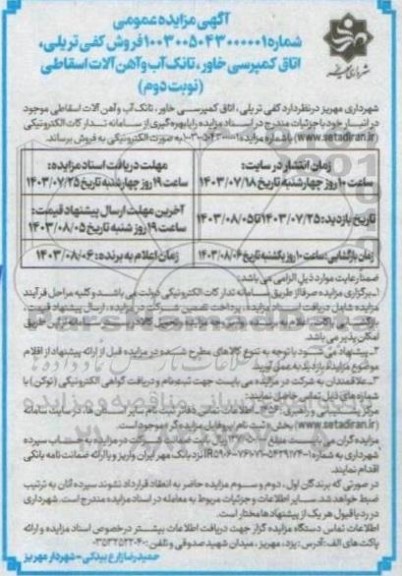 آگهی مزایده عمومی
شماره ۱۰۰۳۰۰۵۰۴۳۰۰۰۰۰۱ فروش کفی تریلی،
اتاق کمپرسی خاور، تانک آب و آهن آلات اسقاطی
(نوبت دوم)
شهرداری مهریز
شهرداری مهریز در نظر دارد کفی تریلی، اتاق کمپرسی خاور، تانک آب و آهن آلات اسقاطی موجود
در انبار خود با جزئیات مندرج در اسناد مزایده را با بهره گیری از سامانه تدارکات الکترونیکی
(www.setadiran.ir) با شماره مزایده به صورت الکترونیکی به فروش برساند.
زمان انتشار در سایت:
ساعت ۱۰ روز چهارشنبه تاریخ ۱۴۰۳/۰۷/۱۸
مهلت دریافت اسناد مزایده:
ساعت ۱۹ روز چهارشنبه تاریخ ۱۴۰۳/۰۷/۲۵
تاریخ بازدید: ۱۴۰۳/۰۷/۲۵ تا ۱۴۰۳/۰۸/۰۵
آخرین مهلت ارسال پیشنهاد قیمت:
ساعت ۱۹ روز شنبه تاریخ ۱۴۰۳/۰۸/۰۵
زمان بازگشایی: ساعت ۱۰ روز یکشنبه تاریخ ۱۴۰۳/۰۸/۰۶
زمان اعلام به برنده: ۱۴۰۳/۰۸/۰۶
ضمنا رعایت موارد ذیل الزامی می باشد:
۱ـ برگزاری مزایده صرفا از طریق سامانه تدارکات الکترونیکی دولت می باشد و کلیه مراحل فرآیند
مزایده شامل دریافت اسناد مزایده، پرداخت تضمین شرکت در مزایده، ارسال پیشنهاد قیمت،
از این طریق
امکان پذیر می باشد.
۲ـ پیشنهاد می شود با توجه به تنوع کالاهای مطرح شده در مزایده قبل از ارائه پیشنهاد از اقلام
موضوع مزایده بازدید به عمل آورید.
۳ـ علاقمندان به شرکت در مزایده می بایست جهت ثبت نام و دریافت گواهی الکترونیکی (توکن) با
شماره های ذیل تماس حاصل نمایند:
مرکز پشتیبانی و راهبری: اطلاعات تماس دفاتر ثبت نام سایر استان ها، در سایت سامانه
(www.setadiran.ir) بخش «ثبت نام / پروفایل مزایده گر» موجود است.
مزایده گران می بایست مبلغ شرکت در مزایده به حساب سپرده
شهرداری به شماره نزد بانک مهر ایران واریز و یا ارائه ضمانت نامه بانکی
اقدام نمایند.
در صورتی که برندگان اول، دوم و سوم مزایده حاضر به انعقاد قرارداد نشوند سپرده آنان به ترتیب
ضبط خواهد شد. سایر اطلاعات و جزئیات مربوط به معامله در اسناد مزایده مندرج است. شهرداری
در رد یا قبول هر یک از پیشنهادها مختار است.
اطلاعات تماس دستگاه مزایده گزار جهت دریافت اطلاعات بیشتر در خصوص اسناد مزایده و ارائه
پاکت های الف: آدرس: یزد، مهریز، میدان شهید صدوقی و تلفن: ۰۳۵۳۲۵۲۲۰۴۰۰
حمیدرضا زارع بیدکی - شهردار مهریز